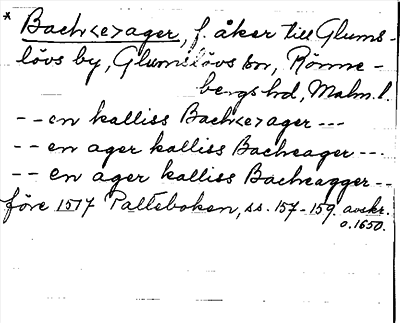 * Bach<e>ager, f. åker till Glums-
lövs by, Glumslövs sn, Rönne-
bergs hd, Malm. l.
-- en kalliss Bach<e>ager ---
-- en ager kalliss Bacheager ---
-- en ager kalliss Bacheagger --
före 1517 Palteboken, ss. 157-159. avskr.
o. 1650.